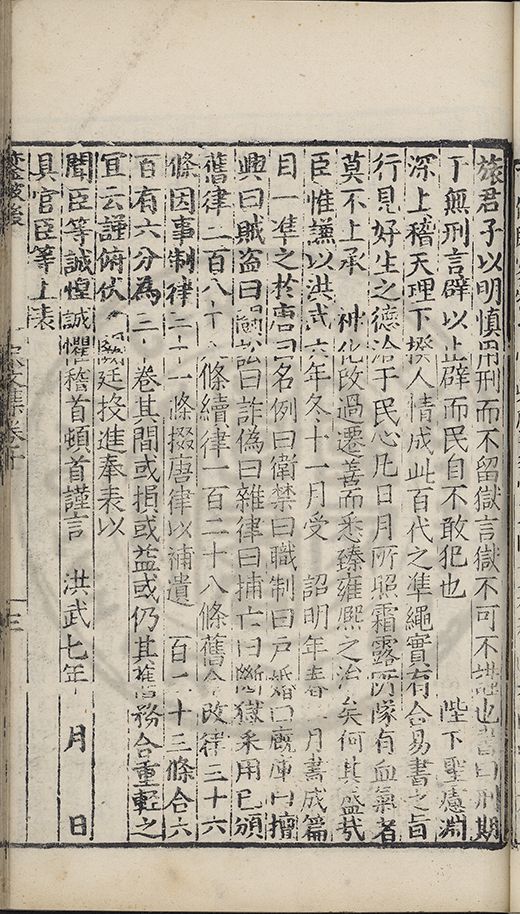 旅君子以明慎用刑而不留獄言獄不可不謹也書曰刑期
于無刑言辟以止辟而民自不敢犯也 陛下聖慮淵
深上稽天理下揆人情成此百代之準繩實有合易書之旨
行見好生之德洽于民心凡日月所照霜露所隊有血氣者
莫不上承 神化改過遷善而悉臻雍熙之治矣何其盛哉
臣惟謙以洪武六年冬十一月受 詔明年春二月書成篇
目一準之於唐曰名例曰衛禁曰職制曰戶婚曰廄庫曰擅
興曰賊盗曰鬭訟曰詐偽曰雜律曰捕亡曰斷獄采用已頒
舊律二百八十八條續律一百二十八條舊令改律三十六
條因事制律三十一條掇唐律以補遺 百二十三條合六
百有六分為三十卷其間或損或益或仍其舊務合重輕之
宜云謹俯伏 闕廷投進奉表以
聞臣等誠惶誠懼稽首頓首謹言 洪武七年 月 日
具官臣等上表
鑾坡後 集卷十 三